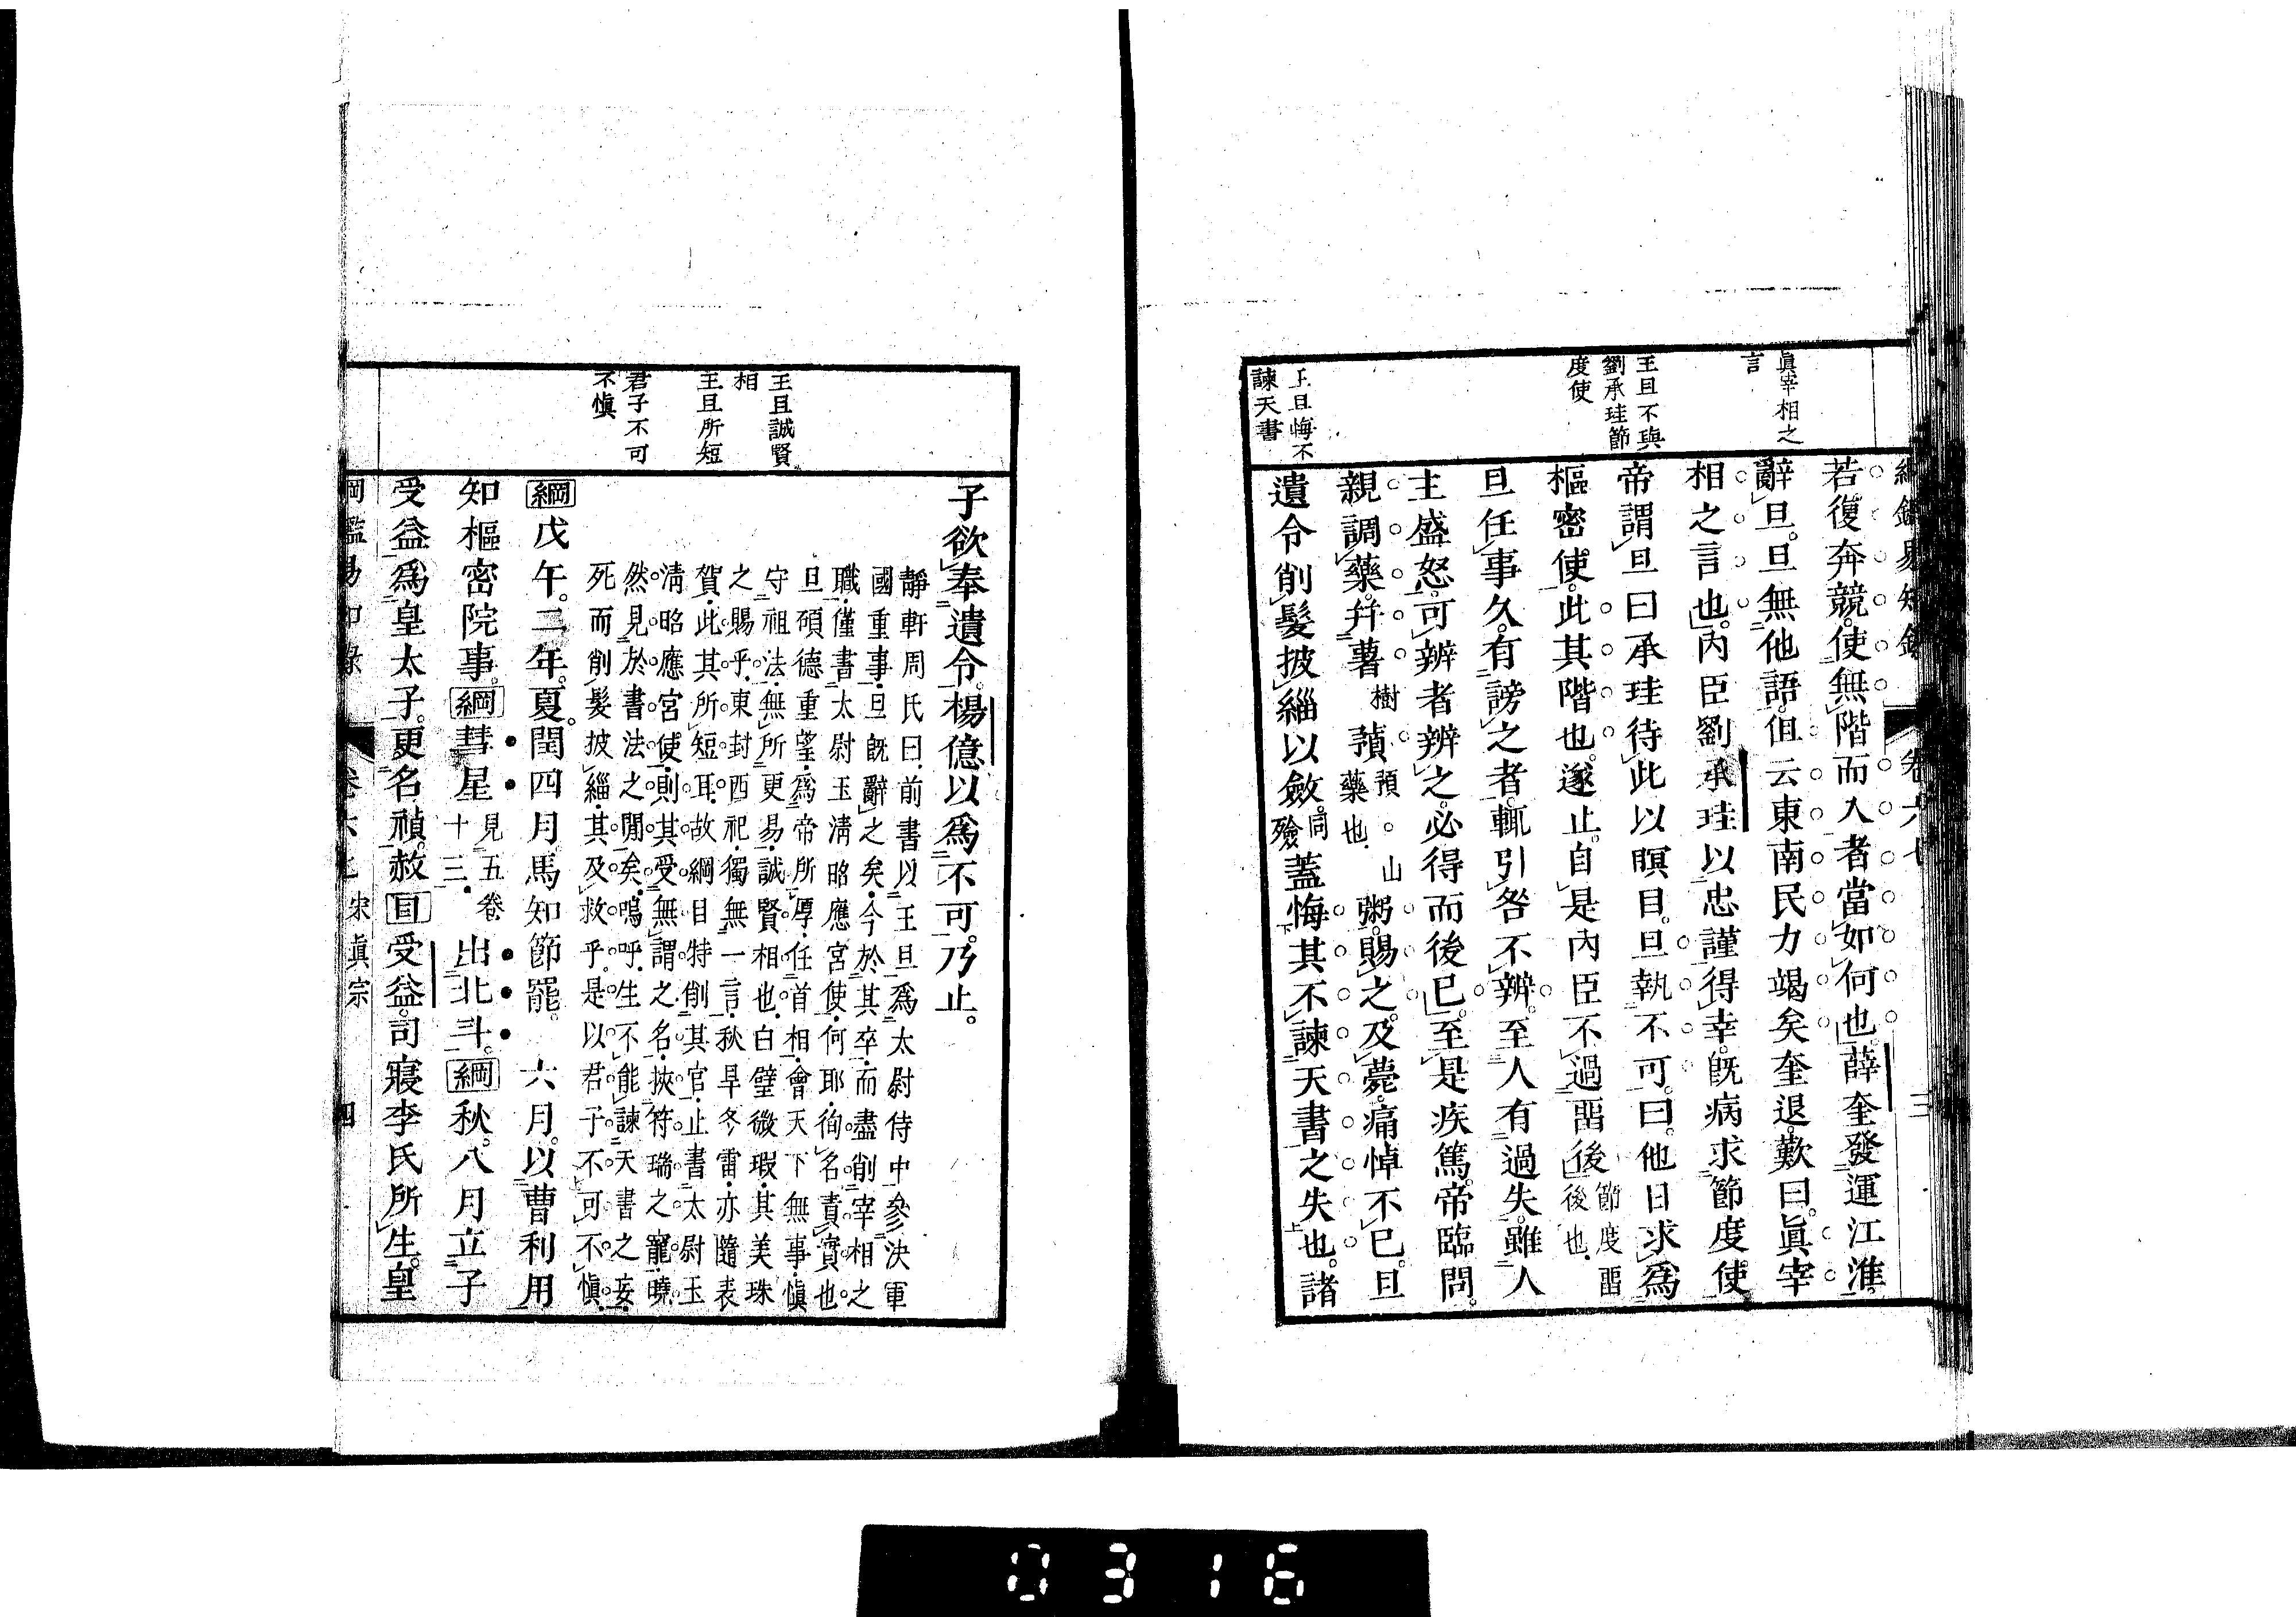 綱鑑易知錄　卷六七　三
眞宰相之
言
王旦不與
劉承珪節
度使
王旦悔不
諫天書
若復奔競使無階而入者當如何也薛奎發運江淮
辭旦旦無他語但云東南民力竭矣奎退歎曰眞宰
相之言也內臣劉承珪以忠謹得幸旣病求節度使
帝謂旦曰承珪待此以瞑目旦執不可曰他日求爲
樞密使此其階也遂止自是內臣不過畱後節度畱後也
旦任事久有謗之者輒引咎不辨至人有過失雖人
主盛怒可辨者辨之必得而後已至是疾篤帝臨問
親調藥幷薯樹蕷預山藥也粥賜之及薨痛悼不已旦
遺令削髮披緇以斂同殮蓋悔其不諫天書之失也諸
王旦誠賢
相
王旦所短
君子不可
不愼
子欲奉遺令楊億以爲不可乃止
靜軒周氏曰前書以王旦爲太尉侍中參決軍
國重事旦旣辭之矣今於其卒而盡削宰相之
職僅書太尉玉淸昭應宮使何耶徇名責實也
旦碩德重望爲帝所厚任首相會天下無事愼
守祖法無所更易誠賢相也白璧微瑕其美珠
之賜乎東封西祀獨無一言秋旱冬雷亦隨表
賀此其所短耳故綱目特削其官止書太尉玉
淸昭應宮使則其受無謂之名挾符瑞之寵曉
然見於書法之閒矣嗚呼生不能諫天書之妄
死而削髮披緇其及救乎是以君子不可不愼
綱戊午二年夏閏四月馬知節罷　六月以曹利用
知樞密院事綱彗星見五卷十三出北斗綱秋八月立子
受益爲皇太子更名禎赦目受益司寢李氏所生皇
綱鑑易知錄　卷六七　宋眞宗　四
0316